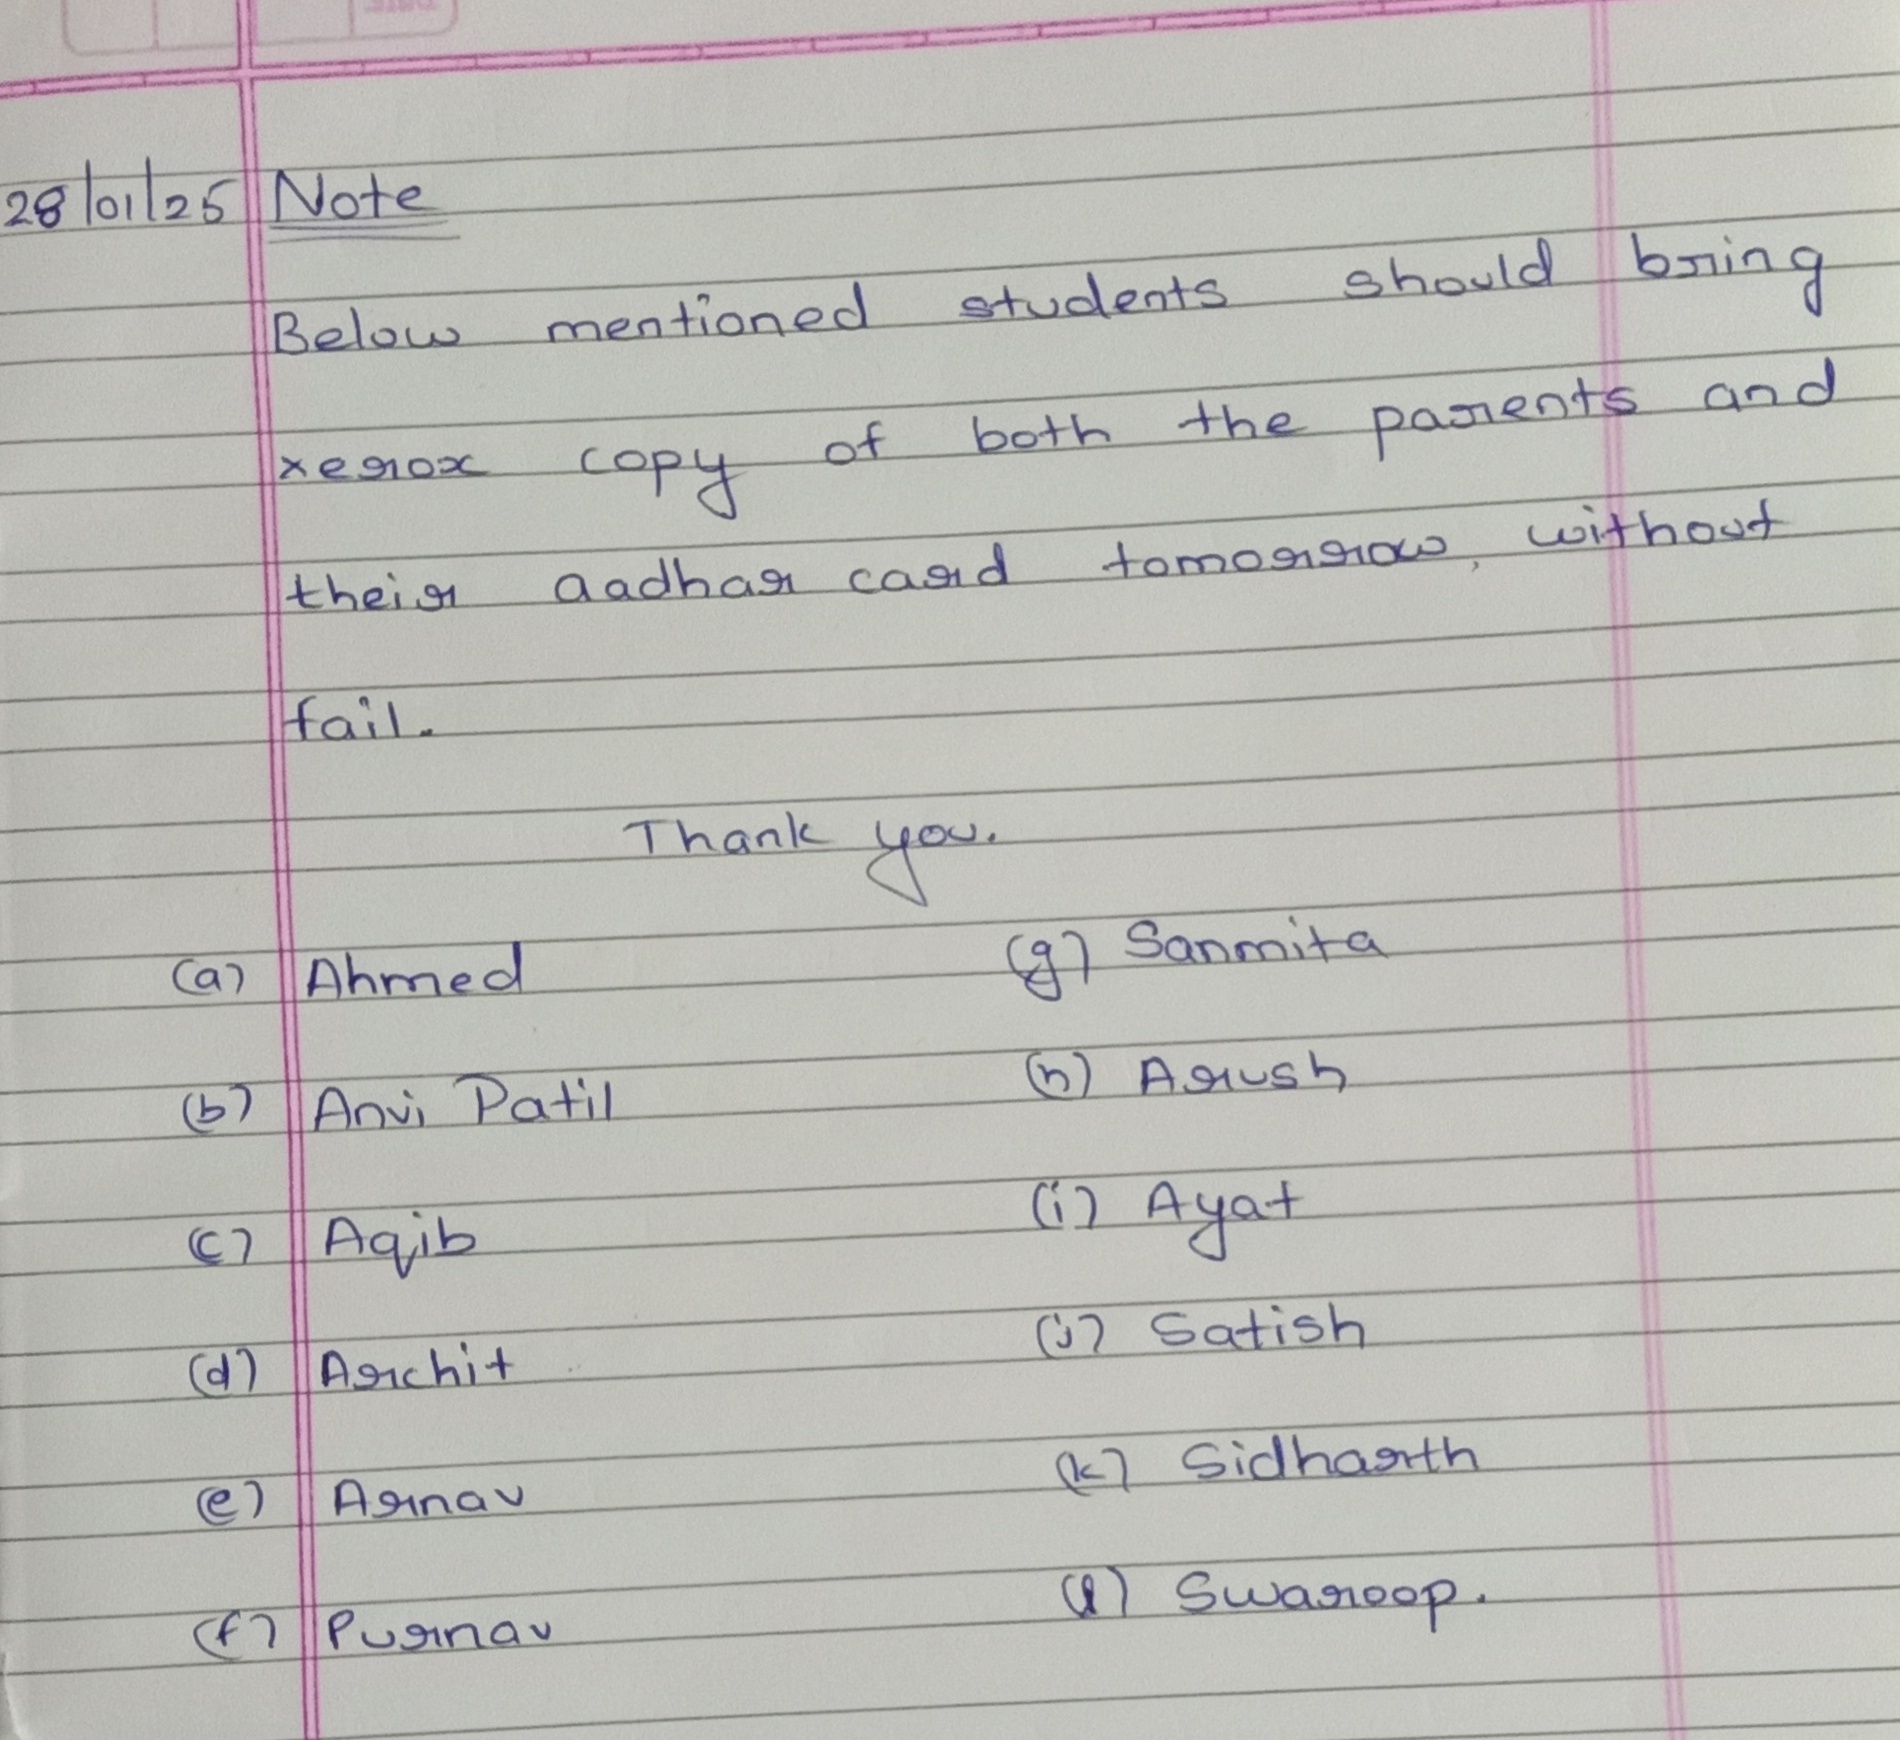 28/01/25 Note
Below mentioned students should bring
xerox copy of both the parents and
their aadhar card tomorrow, without
fail.
Thank you.
(a) Ahmed
(g) Sanmita
(b) Anvi Patil
(h) Arush
(c) Aqib
(i) Ayat
(d) Archit
(j) Satish
(e) Arnav
(k) Sidharth
(f) Purnav
(l) Swaroop.